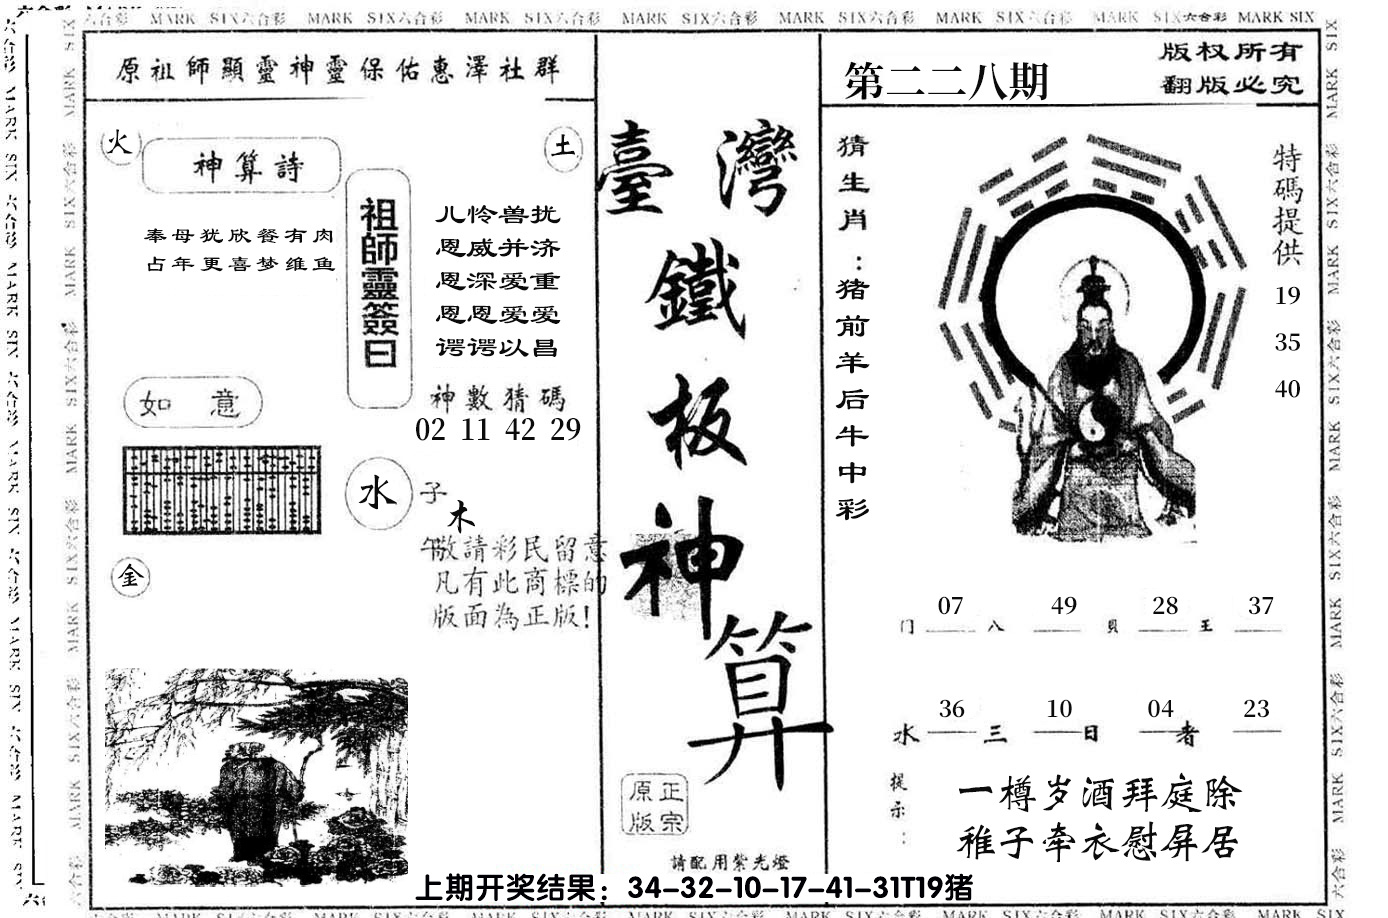 六合彩 MARK SIX六合彩 MARK SIX六合彩 MARK SIX六合彩 MARK SIX六合彩 MARK SIX六合彩 MARK SIX六合彩 MARK SIX六合彩 MARK SIX
原祖師顯靈神靈保佑惠澤社群
火
土
神算詩
奉母犹欣餐有肉
占年更喜梦维鱼
祖師靈簽曰
儿怜兽扰
恩威并济
恩深爱重
恩恩爱爱
谔谔以昌
神數猜碼
02 11 42 29
如 意
水
子
木
午
金
敬請彩民留意
凡有此商標的
版面為正版!
臺灣
鐵
板
神
算
正宗
原版
請配用紫光燈
第二二八期
版权所有
翻版必究
猜生肖:猪前羊后牛中彩
特碼提供
19
35
40
07 49 28 37
门 八 貝 王
36 10 04 23
水 三 日 者
提示:
一樽岁酒拜庭除
稚子牵衣慰屏居
上期开奖结果：34-32-10-17-41-31T19猪